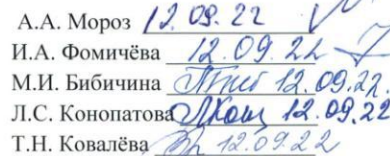 А.А. Мороз 12.09.22
И.А. Фомичёва 12.09.22
М.И. Бибичина 12.09.22.
Л.С. Конопатова 12.09.22
Т.Н. Ковалёва 12.09.22